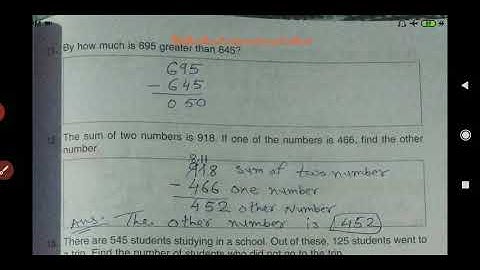 By how much is 695 greater than 645?
695
- 645
0 50
The sum of two numbers is 918. If one of the numbers is 466, find the other
number
8 11
918 sum of two number
- 466 one number
452 other Number
Ans: The other number is 452
There are 545 students studying in a school. Out of these, 125 students went to
a trip. Find the number of students who did not go to the trip.